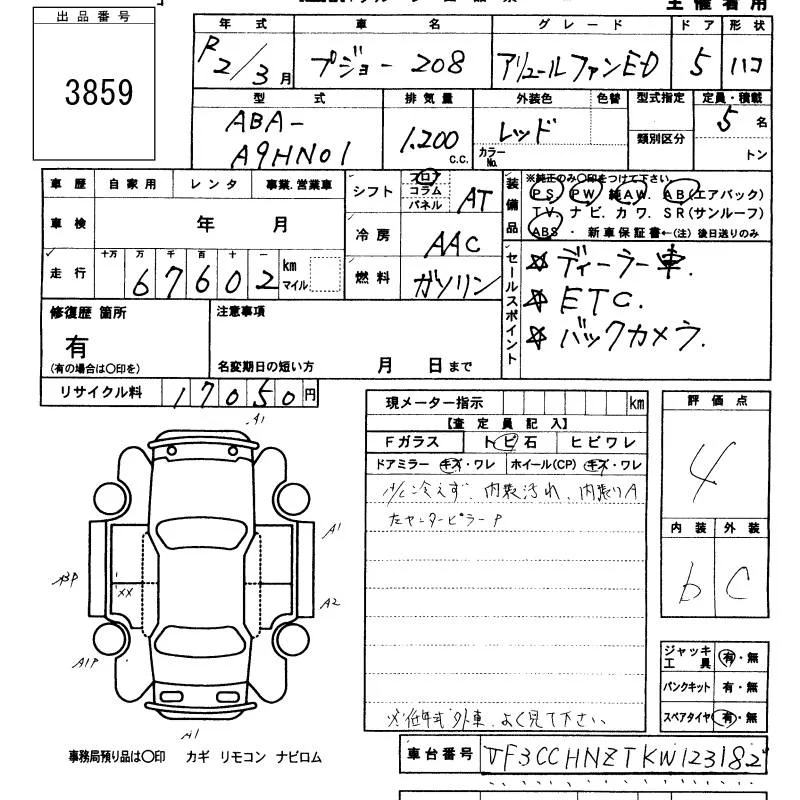 出品番号
3859
年式 車名 グレード ドア 形状
R2/3月 プジョー 208 アリュールファンED 5 ハコ
型式 排気量 外装色 色替 型式指定 定員・積載
ABA-
A9HN01
1.200 c.c.
レッド
カラーNo.
類別区分
5名
トン
車歴 自家用 レンタ 事業.営業車
シフト フロア コラム パネル AT
車検 年 月
冷房 AAC
走行 十万 万 千 百 十 一
67602 km マイル
燃料 ガソリン
装備品
※純正のみ○印をつけて下さい
PS PW 純AW. AB(エアバック)
TV. ナビ. カワ. SR(サンルーフ)
ABS ・ 新車保証書←(注)後日送りのみ
セールスポイント
☆ ディーラー車.
☆ ETC.
☆ バックカメラ.
修復歴 箇所
有
(有の場合は○印を)
注意事項
名変期日の短い方 月 日まで
リサイクル料 17050円
現メーター指示 km
【査定員記入】
Fガラス トビ石 ヒビワレ
ドアミラー キズ・ワレ ホイール(CP) キズ・ワレ
A/C冷えず. 内装汚れ. 内装いA
左センターピラーP
※低年式外車. よく見て下さい.
評価点
4
内装 外装
b C
A1
A1
A3P
XX
A2
A1P
A1
ジャッキ工具 有・無
パンクキット 有・無
スペアタイヤ 有・無
事務局預り品は○印 カギ リモコン ナビロム
車台番号 VF3CCHNZTKW123182